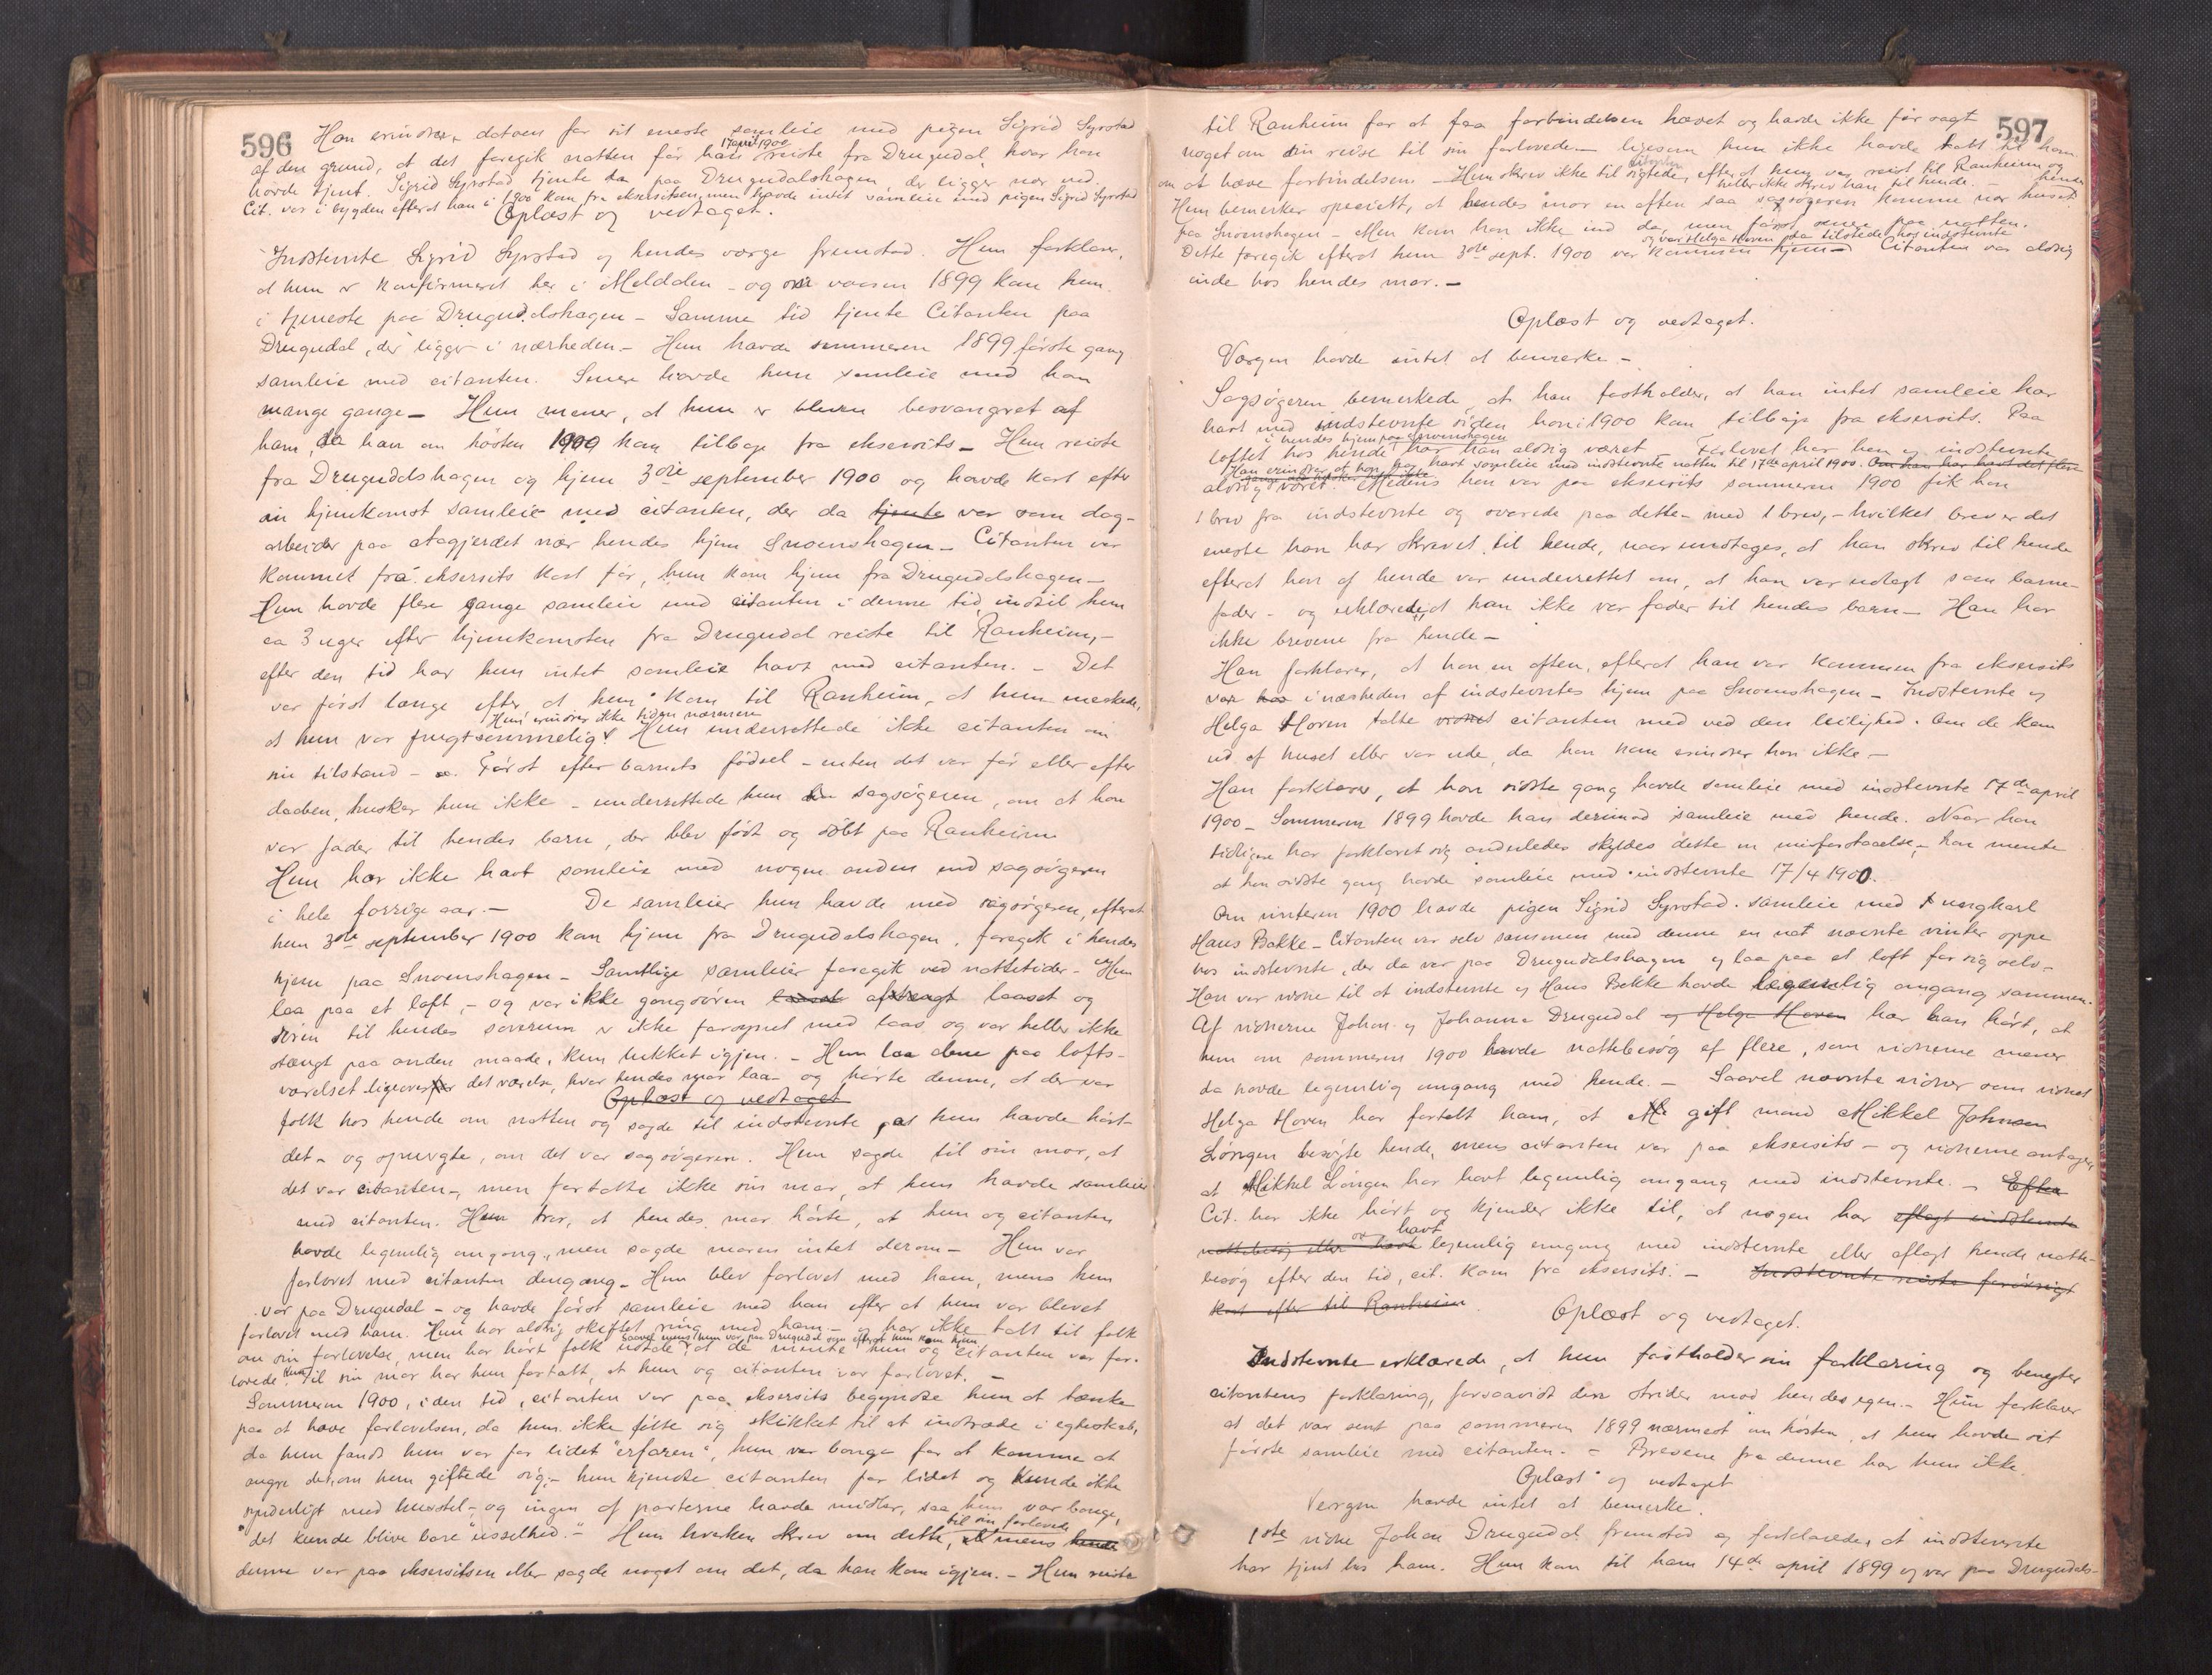 596
Han erindrer datoen for sit eneste samleie med pigen Sigrid Syrstad
17 april 1900
af den grund, at det foregik natten før han reiste fra Drugudal, hvor han
havde tjent. Sigrid Syrstad tjente da paa Drugudalshagen, der ligger nær ved.
Cit. var i bygden efterat han i 1900 kom fra eksersitsen, men havde intet samleie med pigen Sigrid Syrstad
Oplæst og vedtaget.
Indstevnte Sigrid Syrstad og hendes værge fremstod. Hun forklarer,
at hun er konfirmeret her i Meldalen - og om vaaren 1899 kom hun
i tjeneste paa Drugudalshagen - Samme tid tjente Citanten paa
Drugudal, der ligger i nærheden. - Hun havde sommeren 1899 første gang
samleie med citanten. Senere havde hun samleie med ham
mange gange - Hun mener, at hun er bleven besvangret af
ham, da han om høsten 1900 kom tilbage fra eksersits - Hun reiste
fra Drugudalshagen og hjem 3die september 1900 og havde kort efter
sin hjemkomst samleie med citanten, der da tjente var som dag-
arbeider paa Aagjerdet nær hendes hjem Snoenshagen - Citanten var
kommet fra eksersits kort før, hun kom hjem fra Drugudalshagen -
Hun havde flere gange samleie med citanten i denne tid indtil hun
ca 3 uger efter hjemkomsten fra Drugudal reiste til Ranheim, -
efter den tid har hun intet samleie havt med citanten. - Det
var først længe efter, at hun kom til Ranheim, at hun mærkede,
Hun erindrer ikke tiden nærmere
at hun var frugtsommelig. Hun underrettede ikke citanten om
sin tilstand - Først efter barnets fødsel - enten det var før eller efter
daaben, husker hun ikke - underrettede hun sagsøgeren, om at han
var fader til hendes barn, der blev født og døbt paa Ranheim
Hun har ikke havt samleie med nogen anden end sagsøgeren
i hele forrige aar. - De samleier hun havde med sagsøgeren, efterat
hun 3die september 1900 kom hjem fra Drugudalshagen, foregik i hendes
hjem paa Snoenshagen - Samtlige samleier foregik ved nattetider - Hun
laa paa et loft, - og var ikke gangdøren laaset afstængt laaset og
døren til hendes soverum er ikke forsynet med laas og var heller ikke
stængt paa anden maade, kun lukket igjen. - Hun laa alene paa lofts-
værelset ligeover det værelse, hvor hendes mor laa - og hørte denne, at der var
Oplæst og vedtaget
folk hos hende om natten og sagde til indstevnte, at hun havde hørt
det - og spurgte, om det var sagsøgeren. Hun sagde til sin mor, at
det var citanten -, men fortalte ikke sin mor, at hun havde samleie
med citanten. Hun tror, at hendes mor hørte, at hun og citanten
havde legemlig omgang, men sagde moren intet derom - Hun var
forlovet med citanten dengang - Hun blev forlovet med ham, mens hun
var paa Drugudal - og havde først samleie med ham efter at hun var blevet
forlovet med ham. Hun har aldrig skiftet ring med ham - og har ikke talt til folk
saavel mens hun var paa Drugudal som efterat hun kom hjem
om sin forlovelse, men har hørt folk udtale, at de mente hun og citanten var for-
lovede. Kun til sin mor har hun fortalt, at hun og citanten var forlovet. -
Sommeren 1900, i den tid, citanten var paa eksersits begyndte hun at tænke
paa at hæve forlovelsen, da hun ikke følte sig skikket til at indtræde i egteskab,
da hun fandt hun var for lidet "erfaren", hun var bange for at komme at
angre det, om hun giftede sig, - hun kjendte citanten for lidet og kunde ikke
synderligt med husstel - og ingen af parterne havde midler, saa hun var bange,
til sin forlovede
"det kunde blive bare usselhed." - Hun hverken skrev om dette, mens hende
denne var paa eksersitsen eller sagde noget om det, da han kom igjen. - Hun reiste
597
til Ranheim for at faa forbindelsen hævet og havde ikke før sagt
noget om sin reise til sin forlovede - ligesom hun ikke havde talt til ham
citanten
om at hæve forbindelsen. - Hun skrev ikke til sigtede, efterat hun var reist til Ranheim og
heller ikke skrev han til hende. -
Hun bemerker specielt, at hendes mor en aften saa sagsøgeren komme nær hendes huset
paa Snoenshagen - Men kom han ikke ind da, men først senere paa natten.
og var Helga Hoven da tilstede hos indstevnte
Dette foregik efterat hun 3die sept. 1900 var kommen hjem - Citanten var aldrig
inde hos hendes mor. -
Oplæst og vedtaget.
Værgen havde intet at bemerke -
Sagsøgeren bemerkede, at han fastholder, at han intet samleie har
havt med indstevnte siden han i 1900 kom tilbage fra eksersits. Paa
i hendes hjem paa Snoenshagen
loftet hos hende har han aldrig været - Forlovet har hen og indstevnte
Han erindrer, at han har havt samleie med indstevnte natten til 17de april 1900. Om han har havt det flere
gange husker han ikke
aldrig været. Medens han var paa eksersits sommeren 1900 fik han
1 brev fra indstevnte og svarede paa dette - med 1 brev, - hvilket brev er det
eneste han har skrevet til hende, naar undtages, at han skrev til hende
efterat han af hende var underrettet om, at han var udlagt som barne-
fader - og erklærede, at han ikke var fader til hendes barn - Han har
ikke brevene fra hende -
Han forklarer, at han en aften, efterat han var kommen fra eksersits
var hos i nærheden af indstevntes hjem paa Snoenshagen - Indstevnte og
Helga Hoven talte vidnet citanten med ved den leilighed. Om de kom
ud af huset eller var ude, da han kom erindrer han ikke -
Han forklarer, at han sidste gang havde samleie med indstevnte 17de april
1900 - Sommeren 1899 havde han derimod samleie med hende. Naar han
tidligere har forklaret sig anderledes skyldes dette en misforstaaelse, - han mente
at han sidste gang havde samleie med indstevnte 17/4 1900.
Om vinteren 1900 havde pigen Sigrid Syrstad samleie med ungkarl
Hans Bakke - Citanten var selv sammen med denne en nat nævnte vinter oppe
hos indstevnte, der da var paa Drugudalshagen og laa paa et loft for sig selv -
Han var vidne til at indstevnte og Hans Bakke havde legemlig omgang sammen.
Af vidnerne Johan og Johanna Drugudal og Helga Hoven har han hørt, at
hun om sommeren 1900 havde nattebesøg af flere, som vidnerne mener
da havde legemlig omgang med hende. - Saavel nævnte vidner som vidnet
Helga Hoven har fortalt ham, at gift mand Mikkel Johnsen
Løngen besøgte hende, mens citanten var paa eksersits - og vidnerne antager,
at Mikkel Løngen har havt legemlig omgang med indstevnte. - Efter
Cit. har ikke hørt og kjender ikke til, at nogen har aflagt indstevnte
havt
nattebesøg eller legemlig omgang med indstevnte eller aflagt hende natte-
besøg efter den tid, cit. kom fra eksersits. - Indstevnte reiste forøvrigt
kort efter til Ranheim.
Oplæst og vedtaget.
Indstevnte erklærede, at hun fastholder sin forklaring og benegter
citantens forklaring, forsaavidt den strider mod hendes egen. - Hun forklarer
at det var sent paa sommeren 1899 nærmest om høsten, at hun havde sit
første samleie med citanten. - Brevene fra denne har hun ikke.
Oplæst og vedtaget
Vergen havde intet at bemerke.
1ste vidne Johan Drugudal fremstod og forklarede, at indstevnte
har tjent hos ham. Hun kom til ham 14de april 1899 og var paa Drugudals-